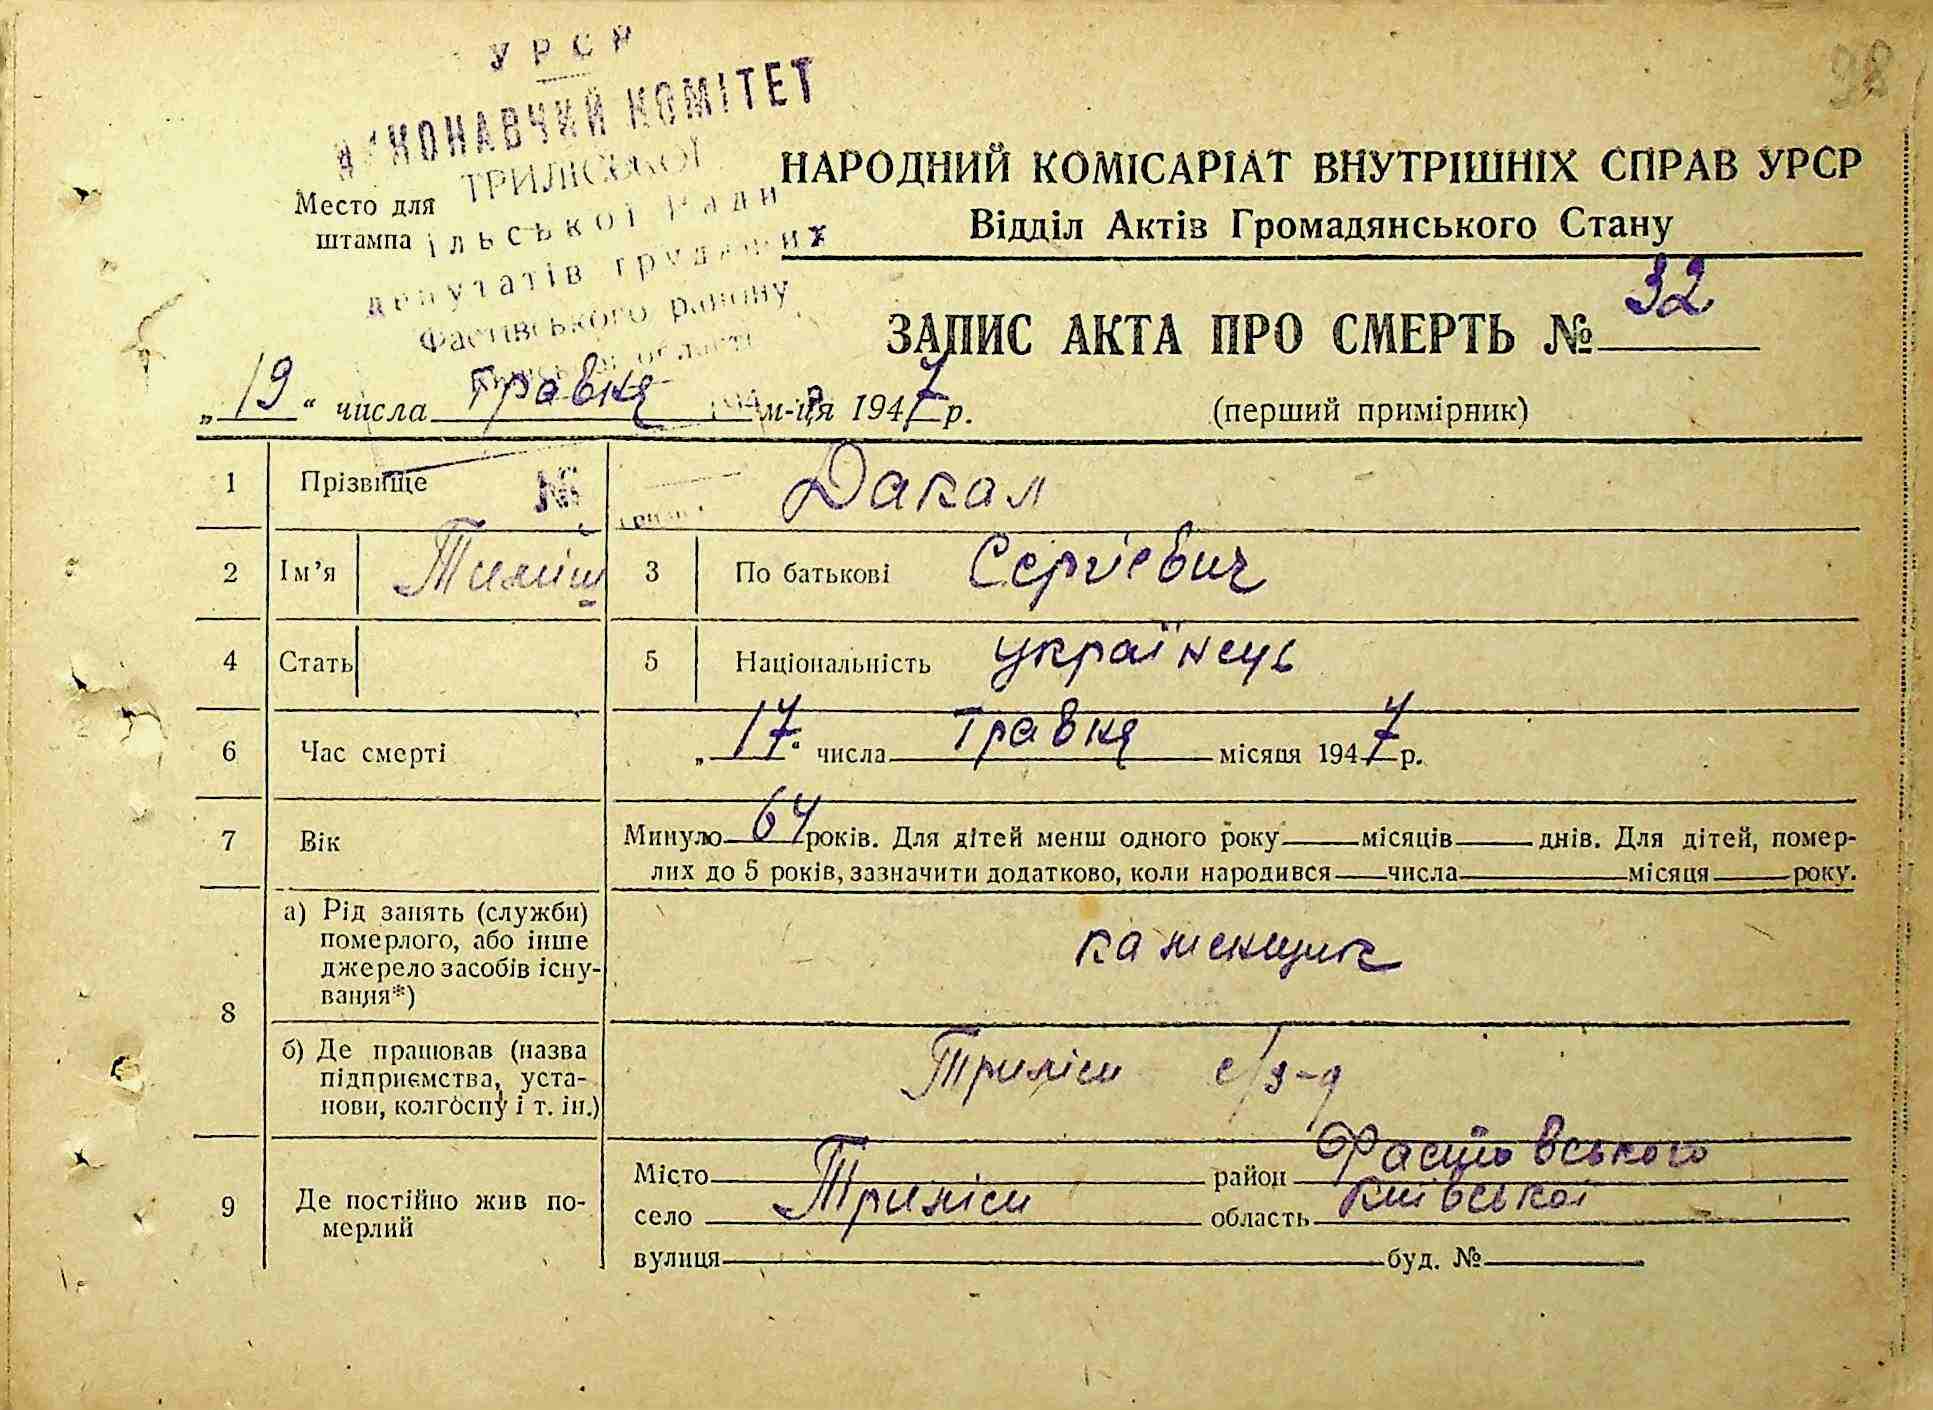 УРСР
ВИКОНАВЧИЙ КОМІТЕТ
ТРИЛІСЬКОЇ
сільської Ради
депутатів трудящих
Фастівського району
області
98
Место для
штампа
НАРОДНИЙ КОМІСАРІАТ ВНУТРІШНІХ СПРАВ УРСР
Відділ Актів Громадянського Стану
ЗАПИС АКТА ПРО СМЕРТЬ № 32
„19“ числа травня м-ця 1947 р.
(перший примірник)
1 Прізвище Дакал
№
2 Ім’я Тиміш 3 По батькові Сергієвич
4 Стать 5 Національність українець
6 Час смерті „17“ числа травня місяця 1947 р.
7 Вік Минуло 64 років. Для дітей менш одного року місяців днів. Для дітей, помер-
лих до 5 років, зазначити додатково, коли народився числа місяця року.
8 а) Рід занять (служби)
померлого, або інше
джерело засобів існу-
вання*)
каменщик
б) Де працював (назва
підприємства, уста-
нови, колгоспу і т. ін.)
Триліси с/з-д
9 Де постійно жив по-
мерлий
Місто район Фастовського
село Триліси область Київської
вулиця буд. №